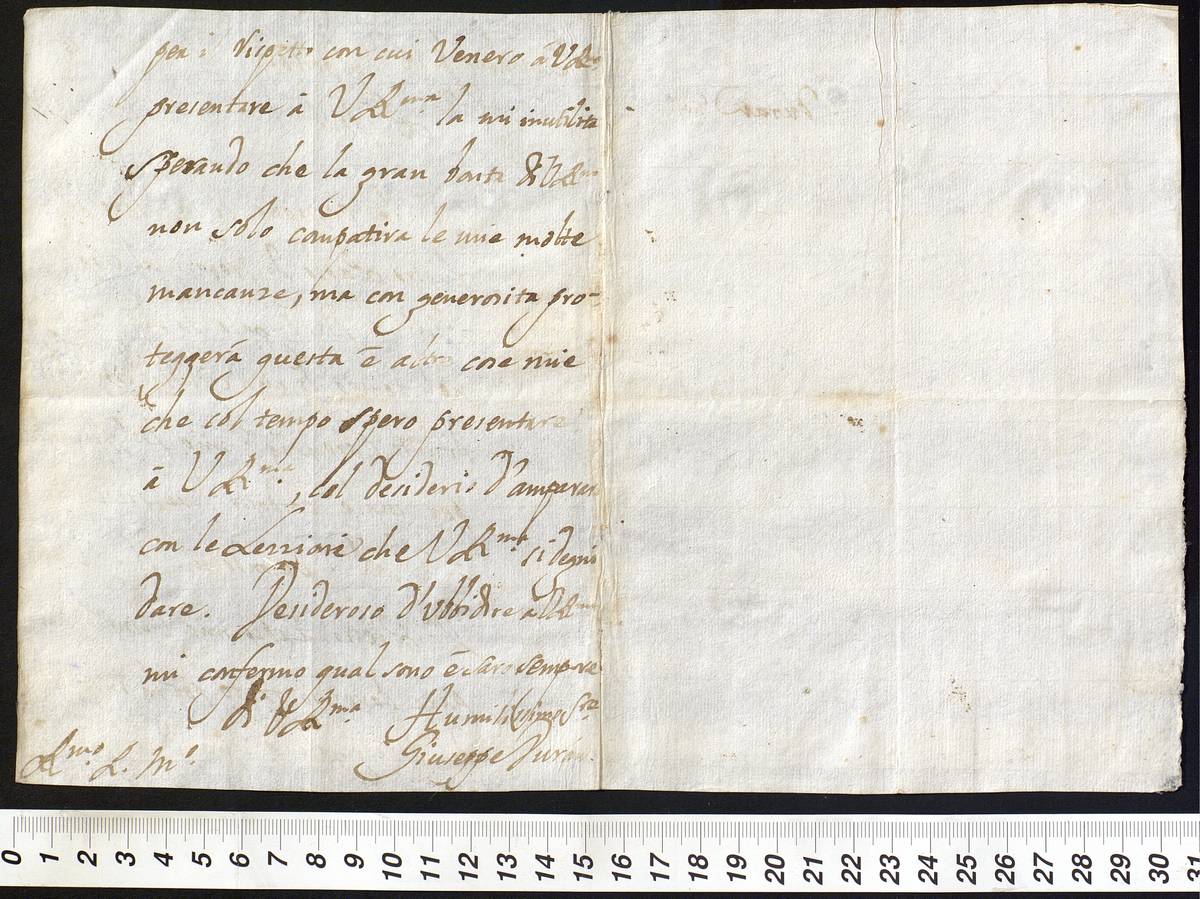 per il rispetto con cui Venero á V R.
presentare á V R.ma la mi inutilita
sperando che la gran bonta di V R.ma
non solo compatira le mie molte
mancanze, ma con generosita pro-
teggerá questa é altre cose mie
che col tempo spero presentare
á V R.ma, col desiderio d'amparar
con le Lezzioni che V R.ma si degni
dare. Desideroso d'ubbidire a V R.ma
mi confermo qual sono é saro sempre
di V R.ma Humilissimo S.re
R.mo P. M.o. Giuseppe Duran.
0 1 2 3 4 5 6 7 8 9 10 11 12 13 14 15 16 17 18 19 20 21 22 23 24 25 26 27 28 29 30 31